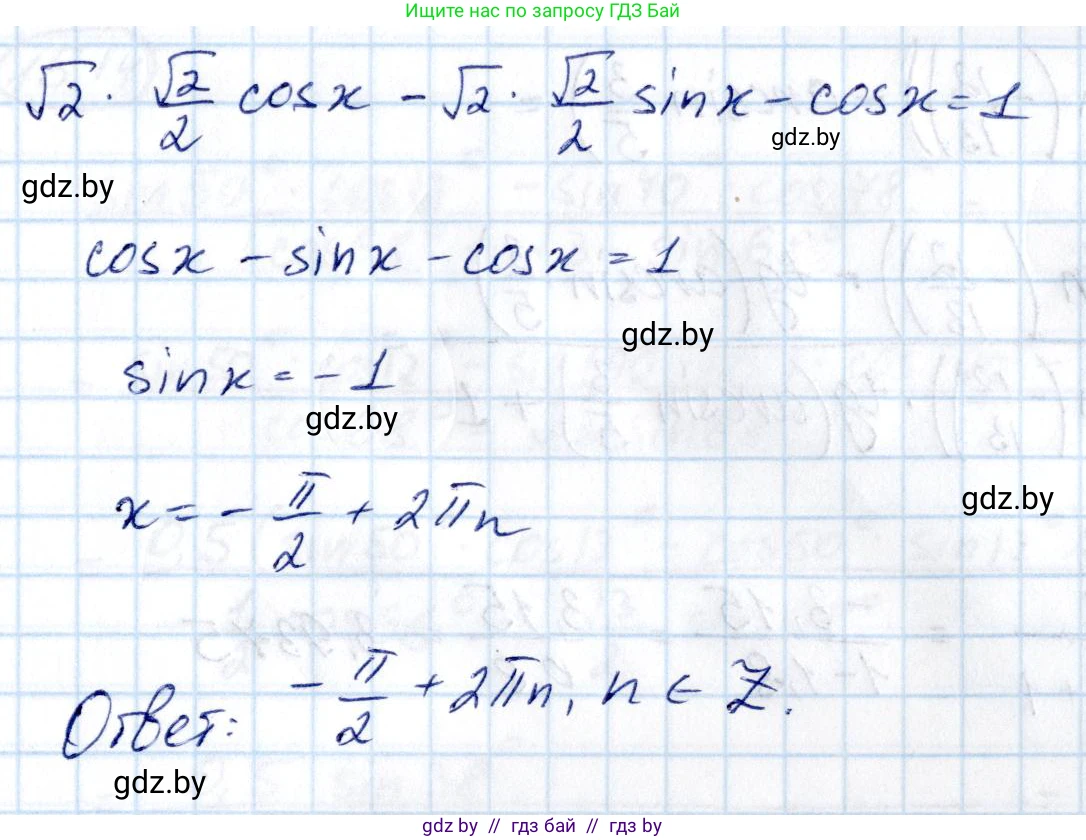 Ищите нас по запросу ГДЗ Бай
√2 · √2/2 cosx - √2 · √2/2 sinx - cosx = 1
gdz.by
gdz.by
cosx - sinx - cosx = 1
gdz.by
sinx = -1
gdz.by
x = - π/2 + 2πn
gdz.by
Ответ: - π/2 + 2πn, n ∈ Z.
gdz.by
gdz.by // гдз бай // gdz.by